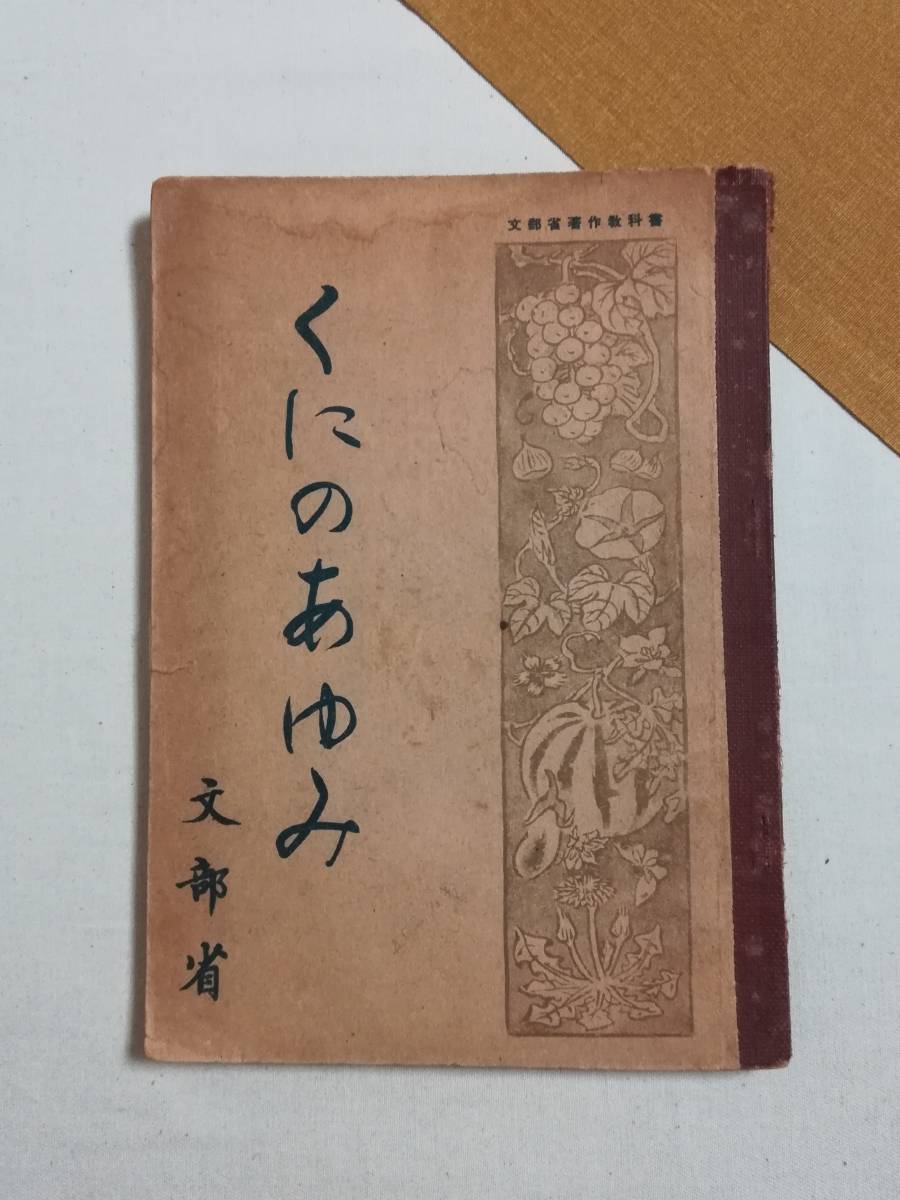 文部省著作教科書
くにのあゆみ
文部省